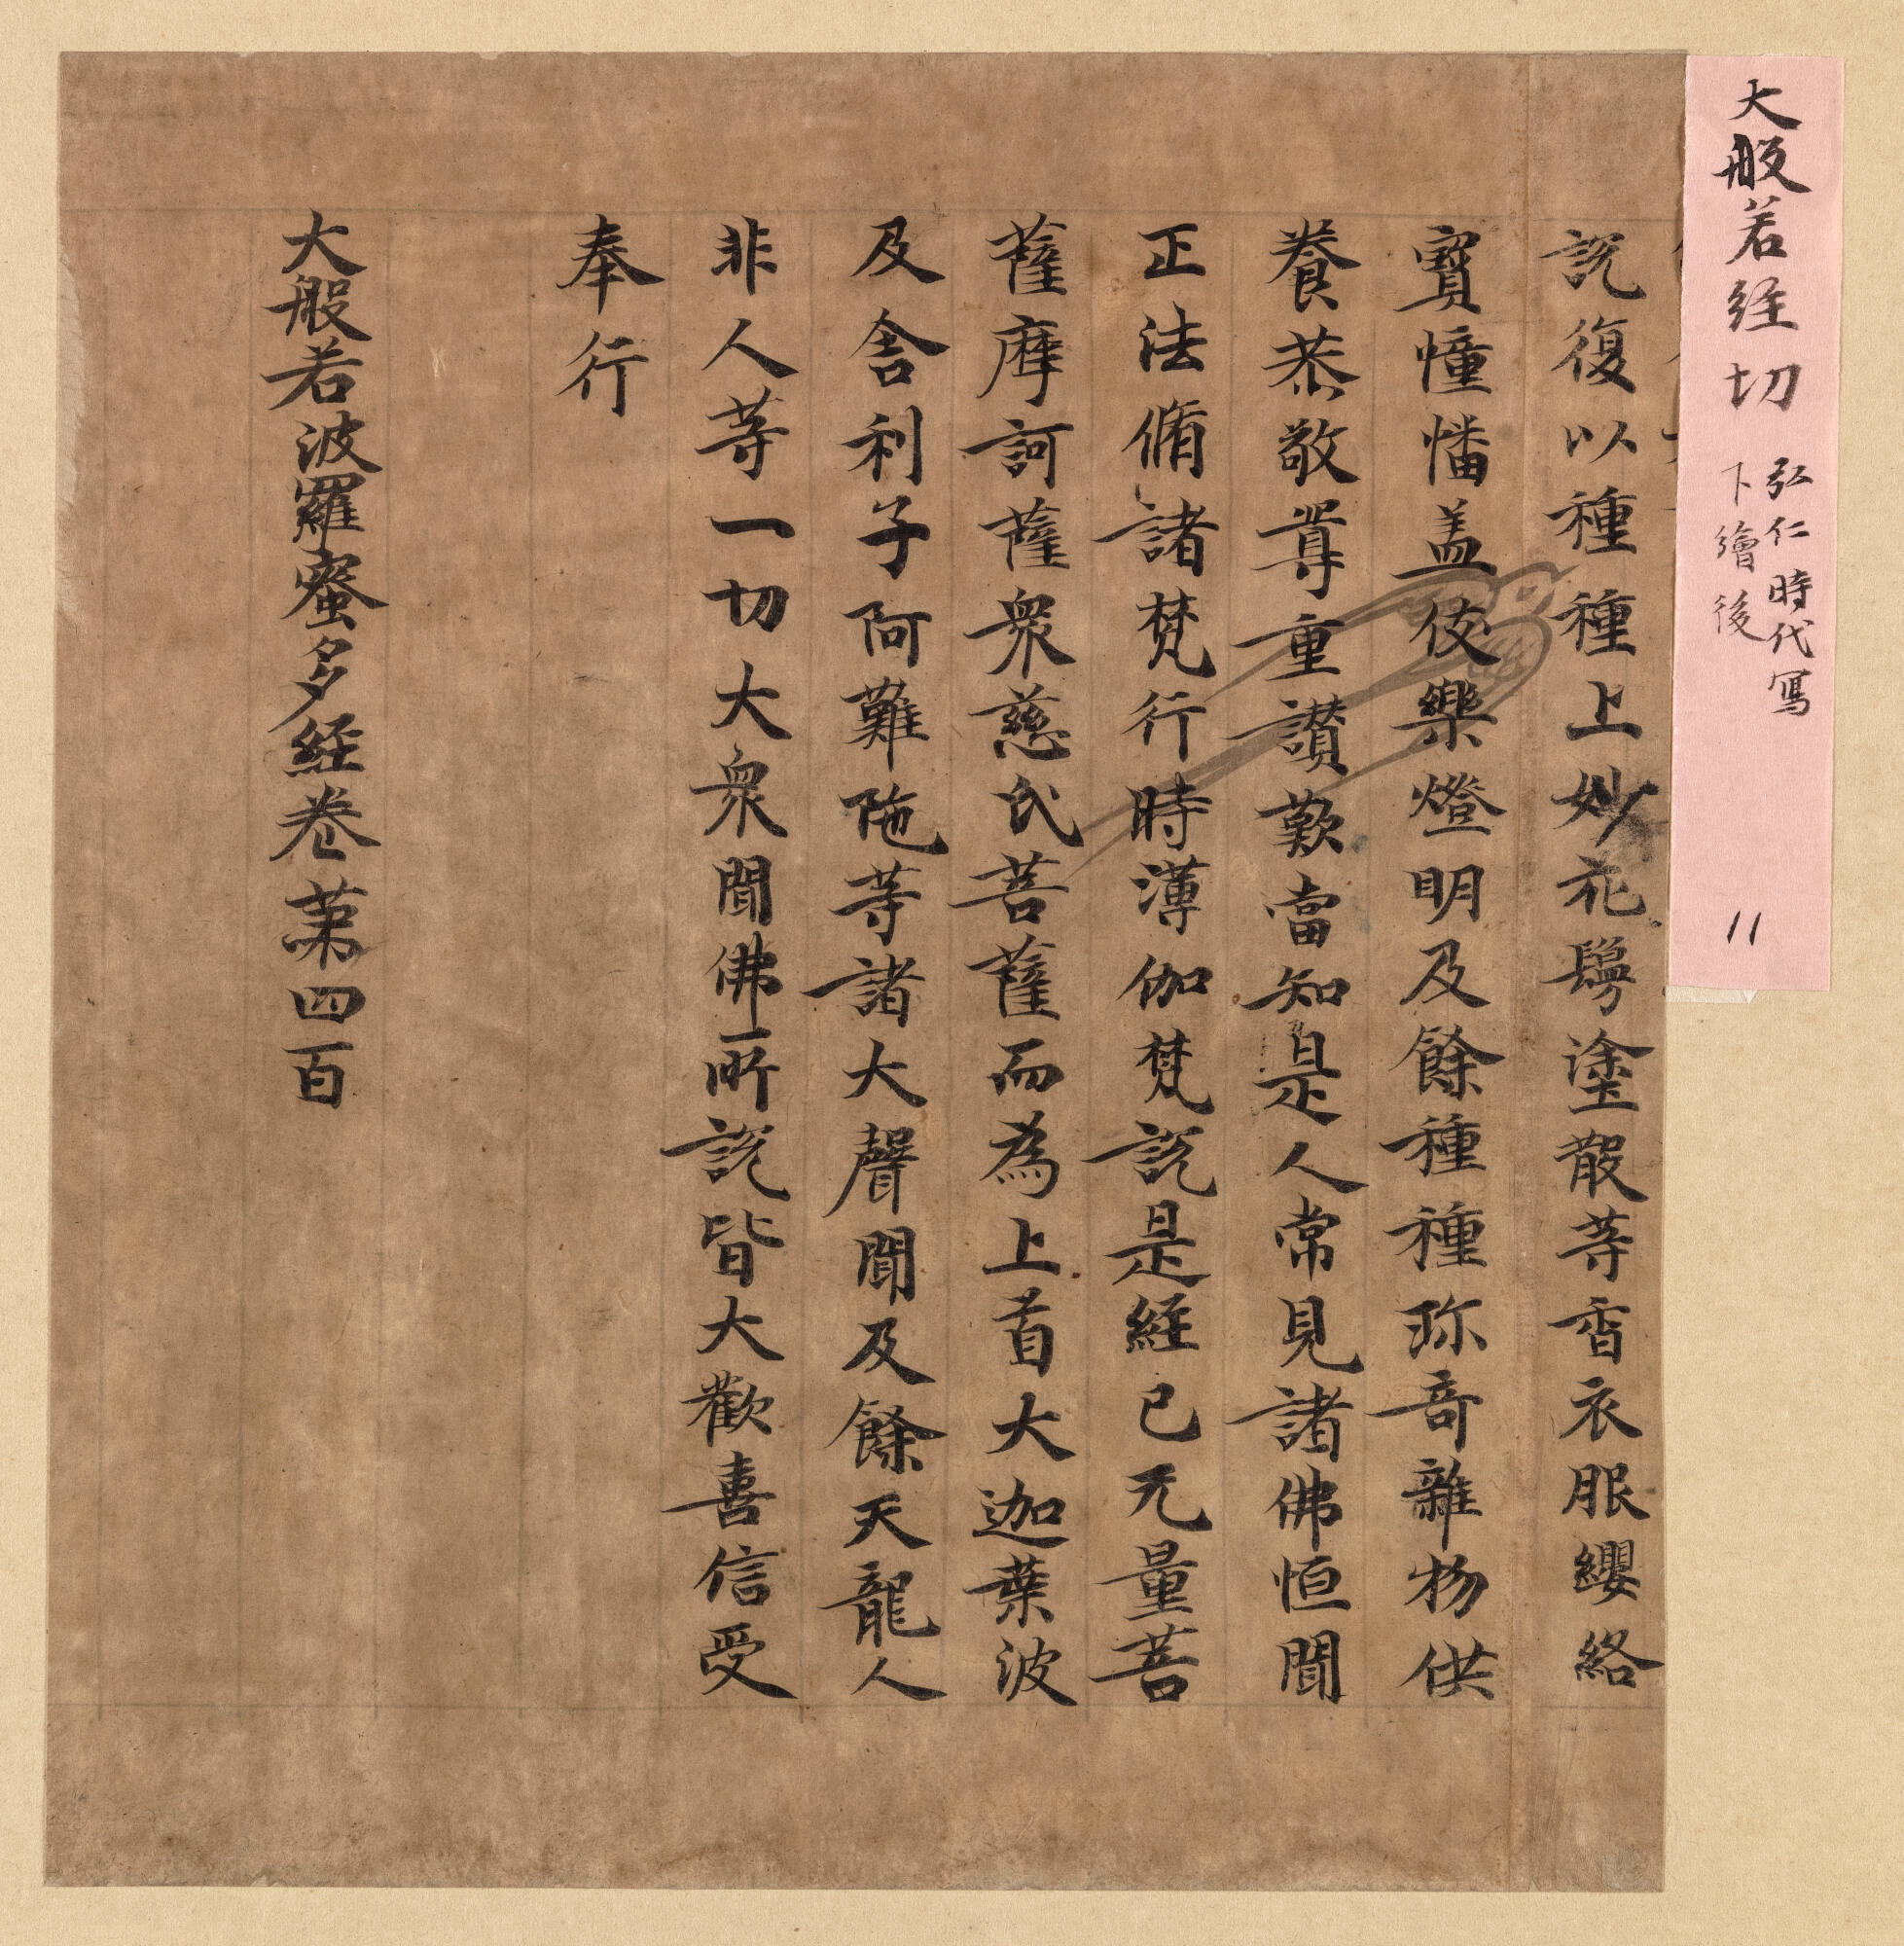 大般若経切
弘仁時代写
下繪後
11
説復以種種上妙花鬘塗散等香衣服纓絡
寳幢幡盖伎樂燈明及餘種種珎竒雜物供
養恭敬尊重讃歎當知是人常見諸佛恒聞
正法脩諸梵行時薄伽梵説是經已无量菩
薩摩訶薩衆慈氏菩薩而為上首大迦葉波
及舎利子阿難陁等諸大聲聞及餘天龍人
非人等一切大衆聞佛所説皆大歡喜信受
奉行
大般若波羅蜜多経巻第四百